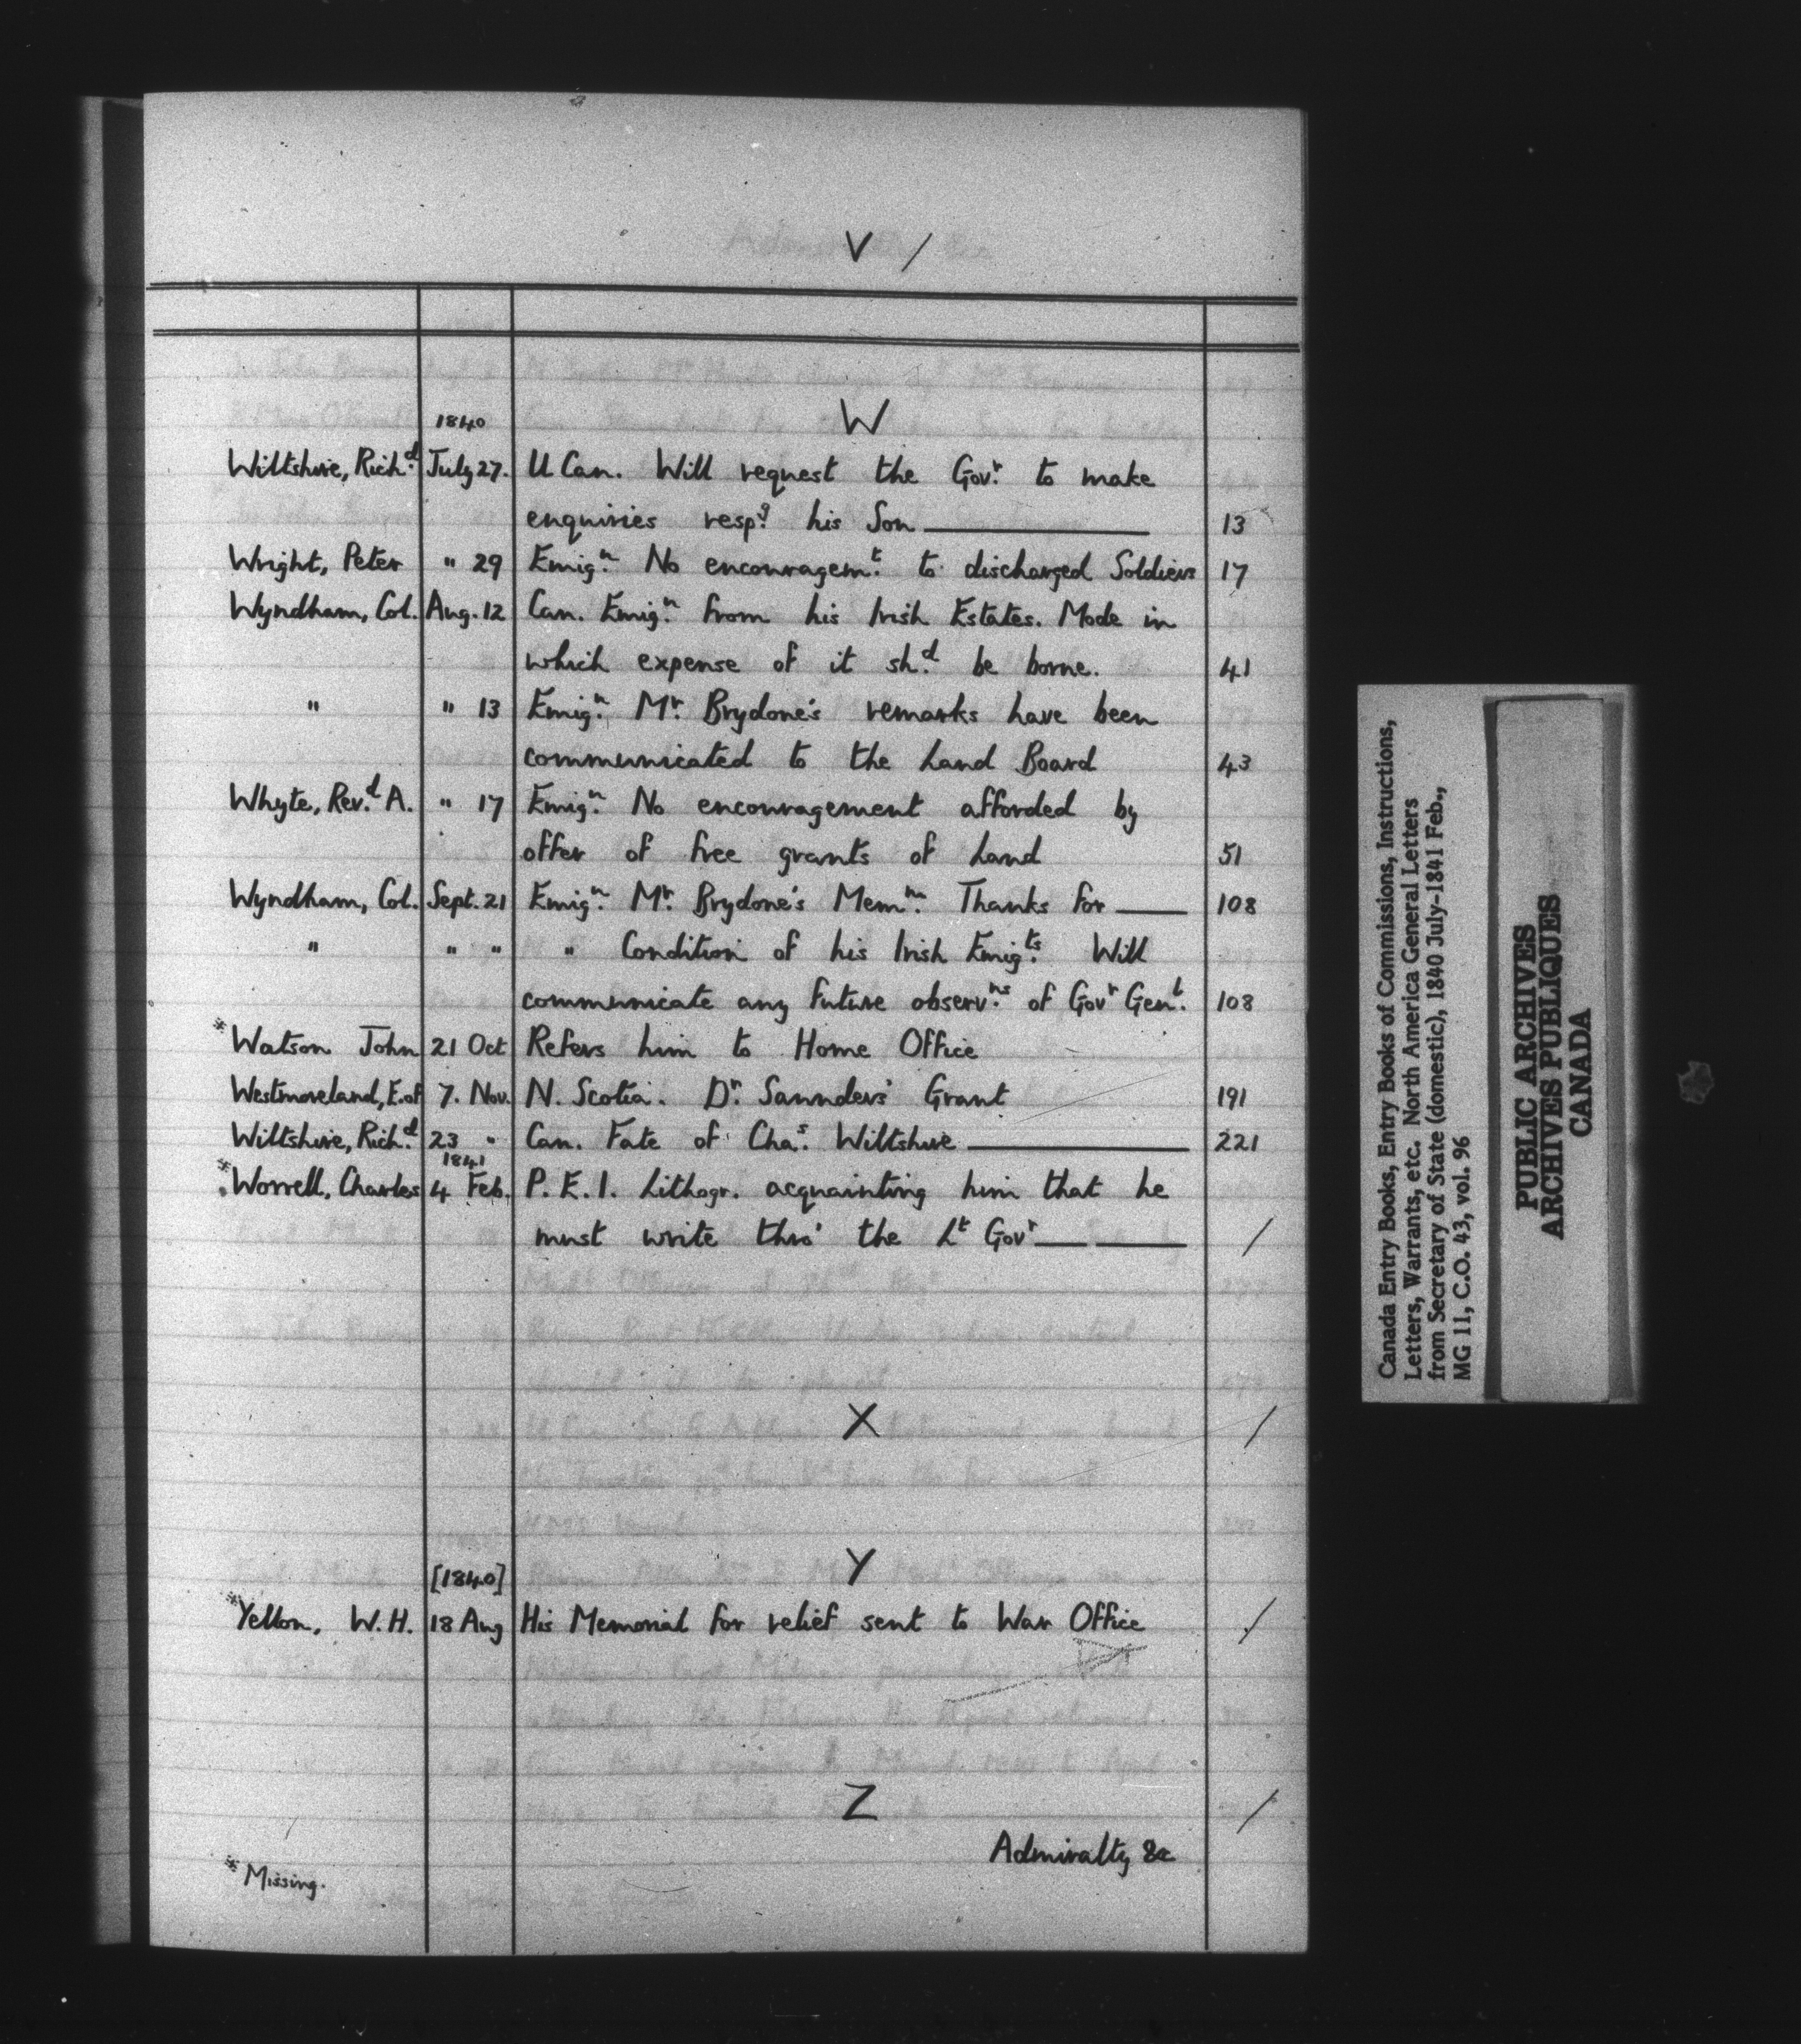 V /
W
1840
Wiltshire, Richd. July 27. U Can. Will request the Govr. to make
enquiries respg. his Son 13
Wright, Peter " 29 Emign. No encouragemt. to discharged Soldiers 17
Wyndham, Col. Aug. 12 Can. Emign. from his Irish Estates. Mode in
which expense of it shd. be borne. 41
" " 13 Emign. Mr. Brydone's remarks have been
communicated to the Land Board 43
Whyte, Revd. A. " 17 Emign. No encouragement afforded by
offer of free grants of Land 51
Wyndham, Col. Sept. 21 Emign. Mr. Brydone's Memm. Thanks for 108
" " " " Condition of his Irish Emigts. Will
communicate any future observns. of Govr Genl. 108
* Watson John 21 Oct Refers him to Home Office
Westmoreland, E. of 7. Nov. N. Scotia. Dr. Saunders' Grant 191
Wiltshire, Richd. 23 " Can. Fate of Chas. Wiltshire 221
1841
* Worrell, Charles 4 Feb. P. E. I. Lithogr. acquainting him that he
must write thro' the Lt Govr /
X /
Y
[1840]
* Yellon, W. H. 18 Aug His Memorial for relief sent to War Office /
Z /
Admiralty &c
* Missing.
Canada Entry Books, Entry Books of Commissions, Instructions,
Letters, Warrants, etc. North America General Letters
from Secretary of State (domestic), 1840 July-1841 Feb.,
MG 11, C.O. 43, vol. 96
PUBLIC ARCHIVES
ARCHIVES PUBLIQUES
CANADA